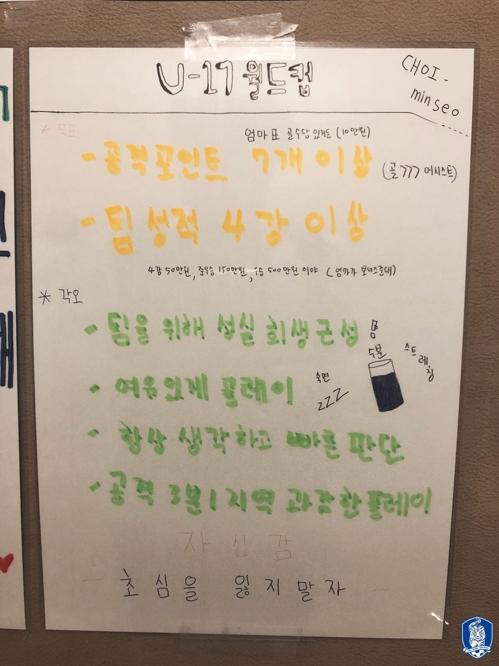 U-17 월드컵
CHOI -
minseo
* 목표
엄마표 골수당 있거든 (10만원)
- 공격포인트 7개 이상
(골 777 어시스트)
- 팀 성적 4강 이상
4강 50만원, 준우승 150만원, 우승 500만원이야 (엄마가 보너스준대)
* 각오
- 팀을 위해 성실 희생 근성
몸
수분
스트레칭
- 여유있게 플레이
숙면
zzz
- 항상 생각하고 빠른 판단
- 공격 3분1지역 과감한플레이
자신감
- 초심을 잃지말자 -